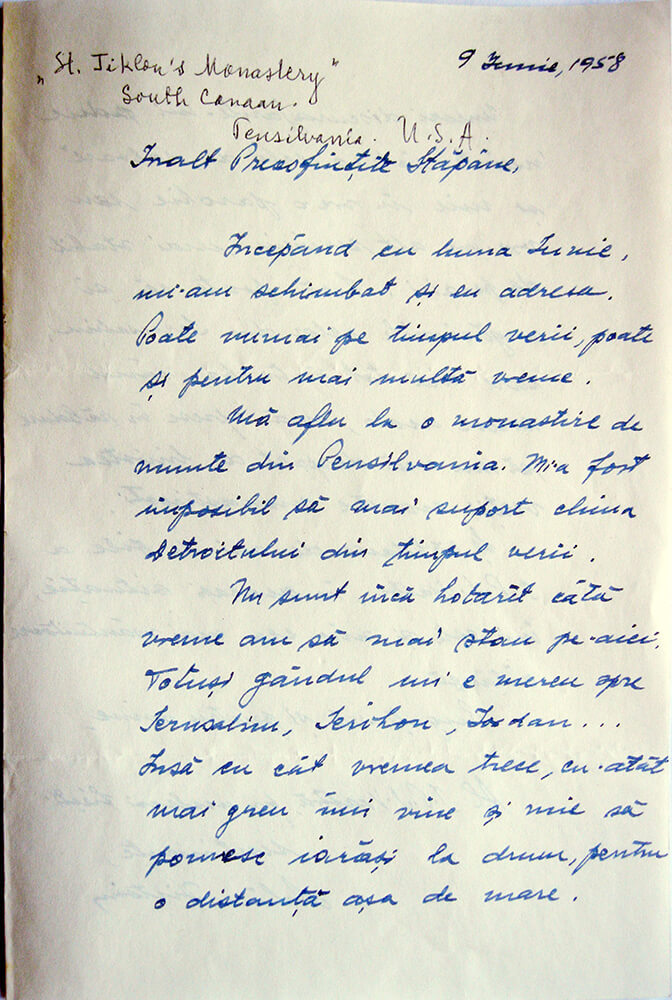 9 Iunie, 1958
„St. Tiklon's Monastery"
South Canaan.
Pensilvania. U.S.A.
Inalt Preasfințite Stăpâne,
Începând cu luna Iunie,
mi-am schimbat și eu adresa.
Poate numai pe timpul verii, poate
și pentru mai multă vreme.
Mă aflu la o monastire de
munte din Pensilvania. Mi-a fost
imposibil să mai suport chinul
Detroitului din timpul verii.
Nu sunt încă hotarît câtă
vreme am să mai stau pe-aici.
Totuși gândul mi e mereu spre
Ierusalim, Ierihon, Iordan...
Însă cu cât vremea trece, cu-atât
mai greu îmi vine și mie să
pornesc iarăși la drum, pentru
o distanță așa de mare.